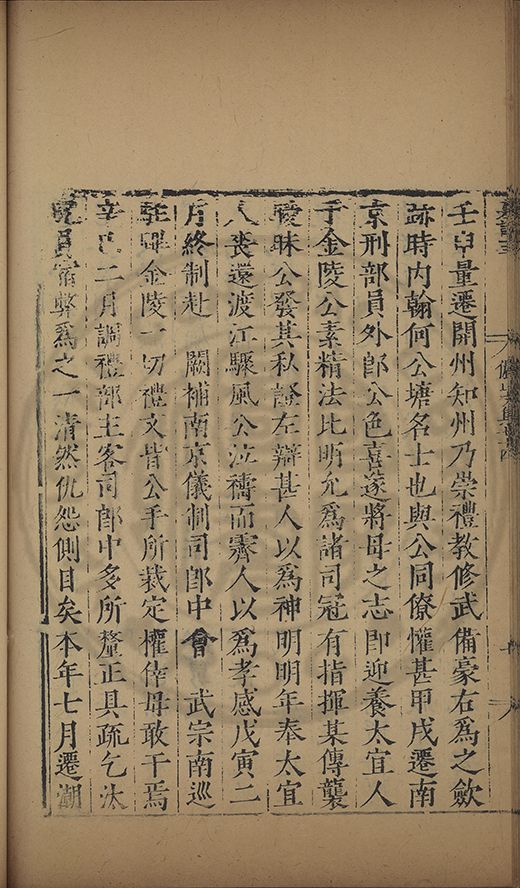 壬申量遷開州知州乃崇禮教修武備豪右爲之歛
跡時内翰何公塘名士也與公同僚懽甚甲戌遷南
京刑部員外郎公色喜遂將母之志即迎養太宜人
于金陵公素精法比明允爲諸司冠有指揮某傳襲
曖昧公發其私證左辯甚人以爲神明明年奉太宜
人喪還渡江驟風公泣禱而霽人以爲孝感戊寅二
月終制赴 闕補南京儀制司郎中會 武宗南巡
駐蹕金陵一切禮文皆公手所裁定權倖毋敢干焉
辛巳二月調禮部主客司郎中多所釐正具疏乞汰
冗員宿弊爲之一清然仇怨側目矣本年七月遷潮